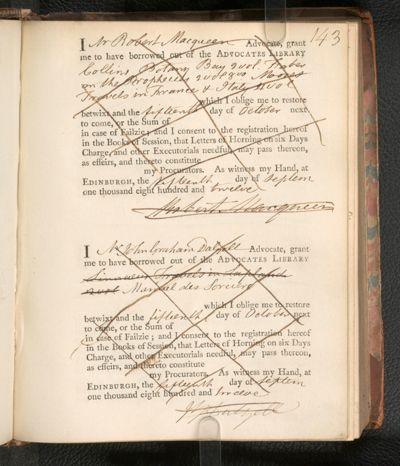 143
I Mr Robert Macqueen Advocate, grant
me to have borrowed out of the ADVOCATES LIBRARY
Collins Botany Bay 2 vol. Faber
on the Prophecies 2 vol 8vo Moores
Travels in France & Italy 4 vol
which I oblige me to restore
betwixt and the fifteenth day of October next
to come, or the Sum of
in case of Failzie; and I consent to the registration hereof
in the Books of Session, that Letters of Horning on six Days
Charge, and other Executorials needful, may pass thereon,
as effeirs, and thereto constitute
my Procurators. As witness my Hand, at
EDINBURGH, the fifteenth day of Septem
one thousand eight hundred and twelve
Robert Macqueen
I Mr John Graham Dalyell Advocate, grant
me to have borrowed out of the ADVOCATES LIBRARY
Linnaeus Travels in Lapland
2 vol Manuel des Sorcier
which I oblige me to restore
betwixt and the fifteenth day of October next
to come, or the Sum of
in case of Failzie; and I consent to the registration hereof
in the Books of Session, that Letters of Horning on six Days
Charge, and other Executorials needful, may pass thereon,
as effeirs, and thereto constitute
my Procurators. As witness my Hand, at
EDINBURGH, the fifteenth day of Septem
one thousand eight hundred and twelve